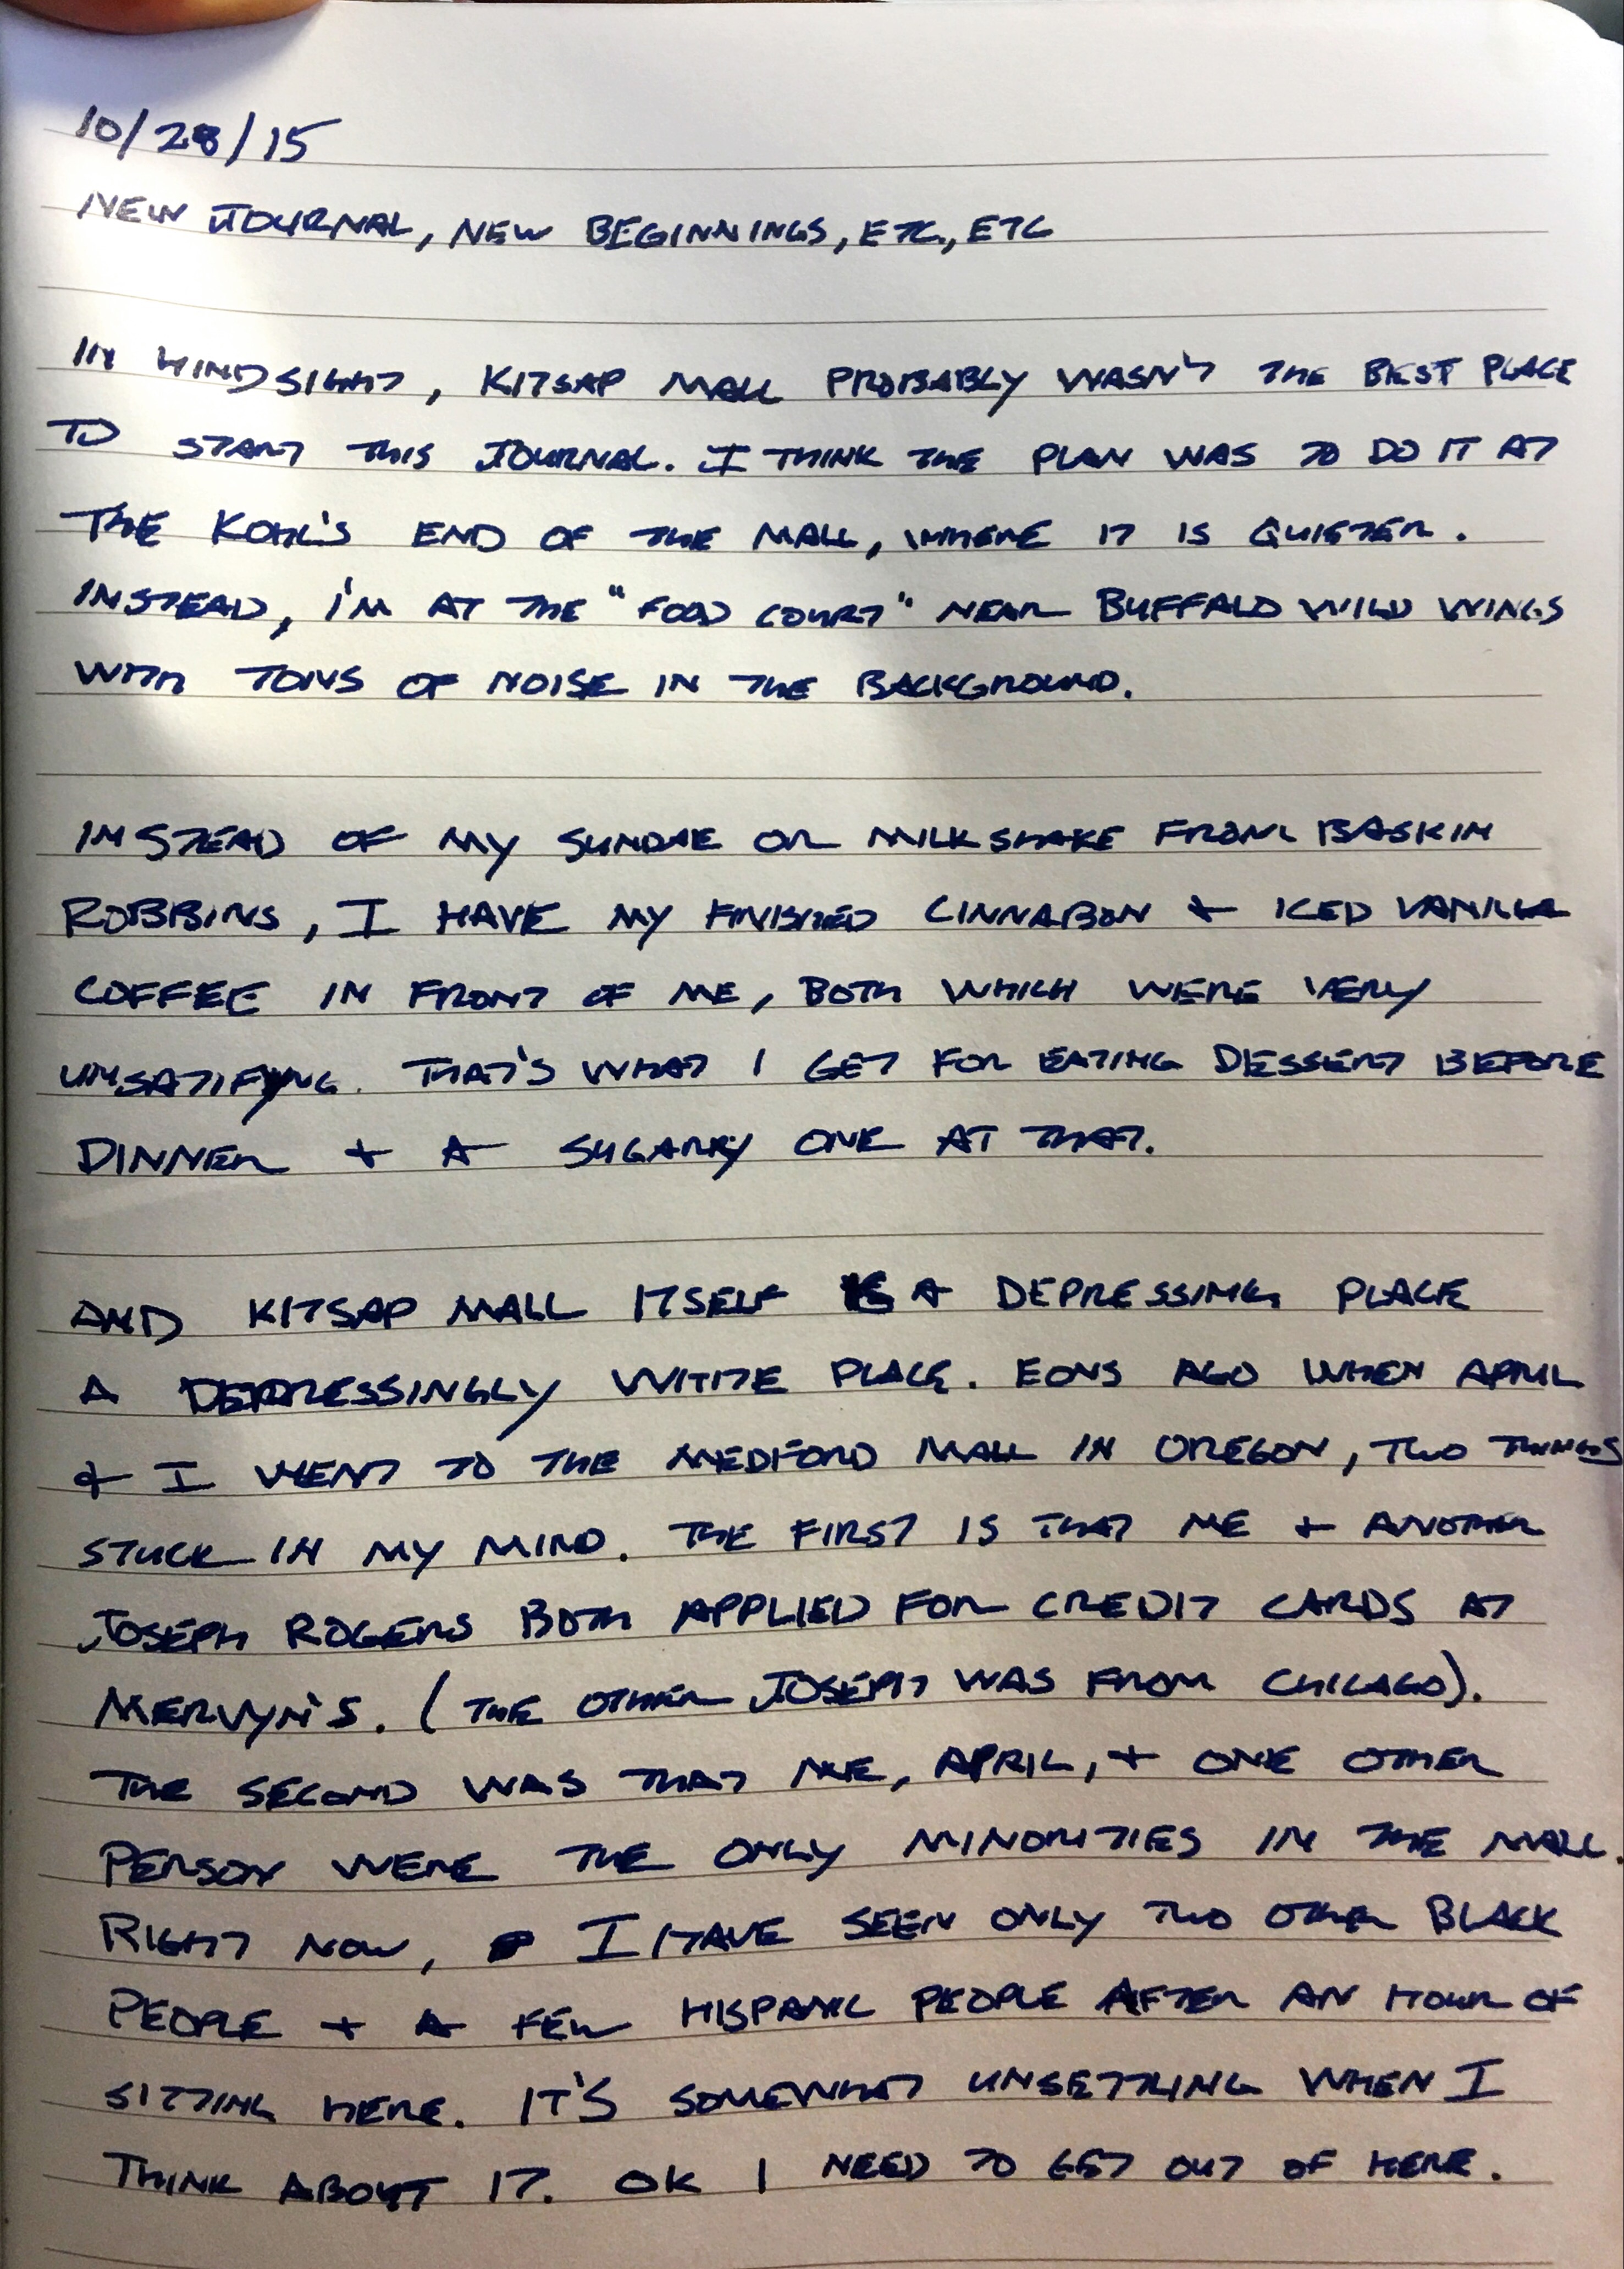 10/28/15
NEW JOURNAL, NEW BEGINNINGS, ETC., ETC
IN HINDSIGHT, KITSAP MALL PROBABLY WASN'T THE BEST PLACE
TO START THIS JOURNAL. I THINK THE PLAN WAS TO DO IT AT
THE KOHL'S END OF THE MALL, WHERE IT IS QUIETER.
INSTEAD, I'M AT THE "FOOD COURT" NEAR BUFFALO WILD WINGS
WITH TONS OF NOISE IN THE BACKGROUND.
INSTEAD OF MY SUNDAE OR MILKSHAKE FROM BASKIN
ROBBINS, I HAVE MY FINISHED CINNABON + ICED VANILLA
COFFEE IN FRONT OF ME, BOTH WHICH WERE VERY
UNSATIFYNG. THAT'S WHAT I GET FOR EATING DESSERT BEFORE
DINNER + A SUGARRY ONE AT THAT.
AND KITSAP MALL ITSELF IS A DEPRESSING PLACE
A DEPRESSINGLY WHITE PLACE. EONS AGO WHEN APRIL
& I WENT TO THE MEDFORD MALL IN OREGON, TWO THINGS
STUCK IN MY MIND. THE FIRST IS THAT ME + ANOTHER
JOSEPH ROGERS BOTH APPLIED FOR CREDIT CARDS AT
MERVYN'S. (THE OTHER JOSEPH WAS FROM CHICAGO).
THE SECOND WAS THAT ME, APRIL, + ONE OTHER
PERSON WERE THE ONLY MINORITIES IN THE MALL.
RIGHT NOW, I HAVE SEEN ONLY TWO OTHER BLACK
PEOPLE + A FEW HISPANIC PEOPLE AFTER AN HOUR OF
SITTING HERE. IT'S SOMEWHAT UNSETTLING WHEN I
THINK ABOUT IT. OK I NEED TO GET OUT OF HERE.